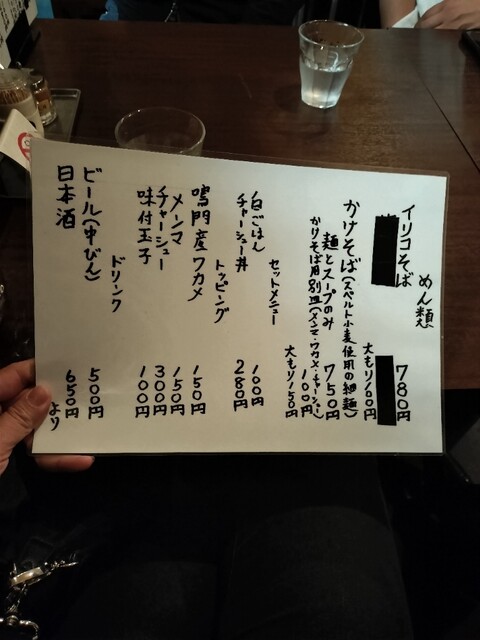 めん類
イリコそば 780円
大もり100円
かけそば(スペルト小麦使用の細麺)
麺とスープのみ 750円
かけそ用別皿(メンマ・ワカメ・チャーシュー) 100円
大もり150円
セットメニュー
白ごはん 100円
チャーシュー丼 280円
トッピング
鳴門産ワカメ 150円
メンマ 150円
チャーシュー 300円
味付玉子 100円
ドリンク
ビール(中びん) 500円
日本酒 650円より